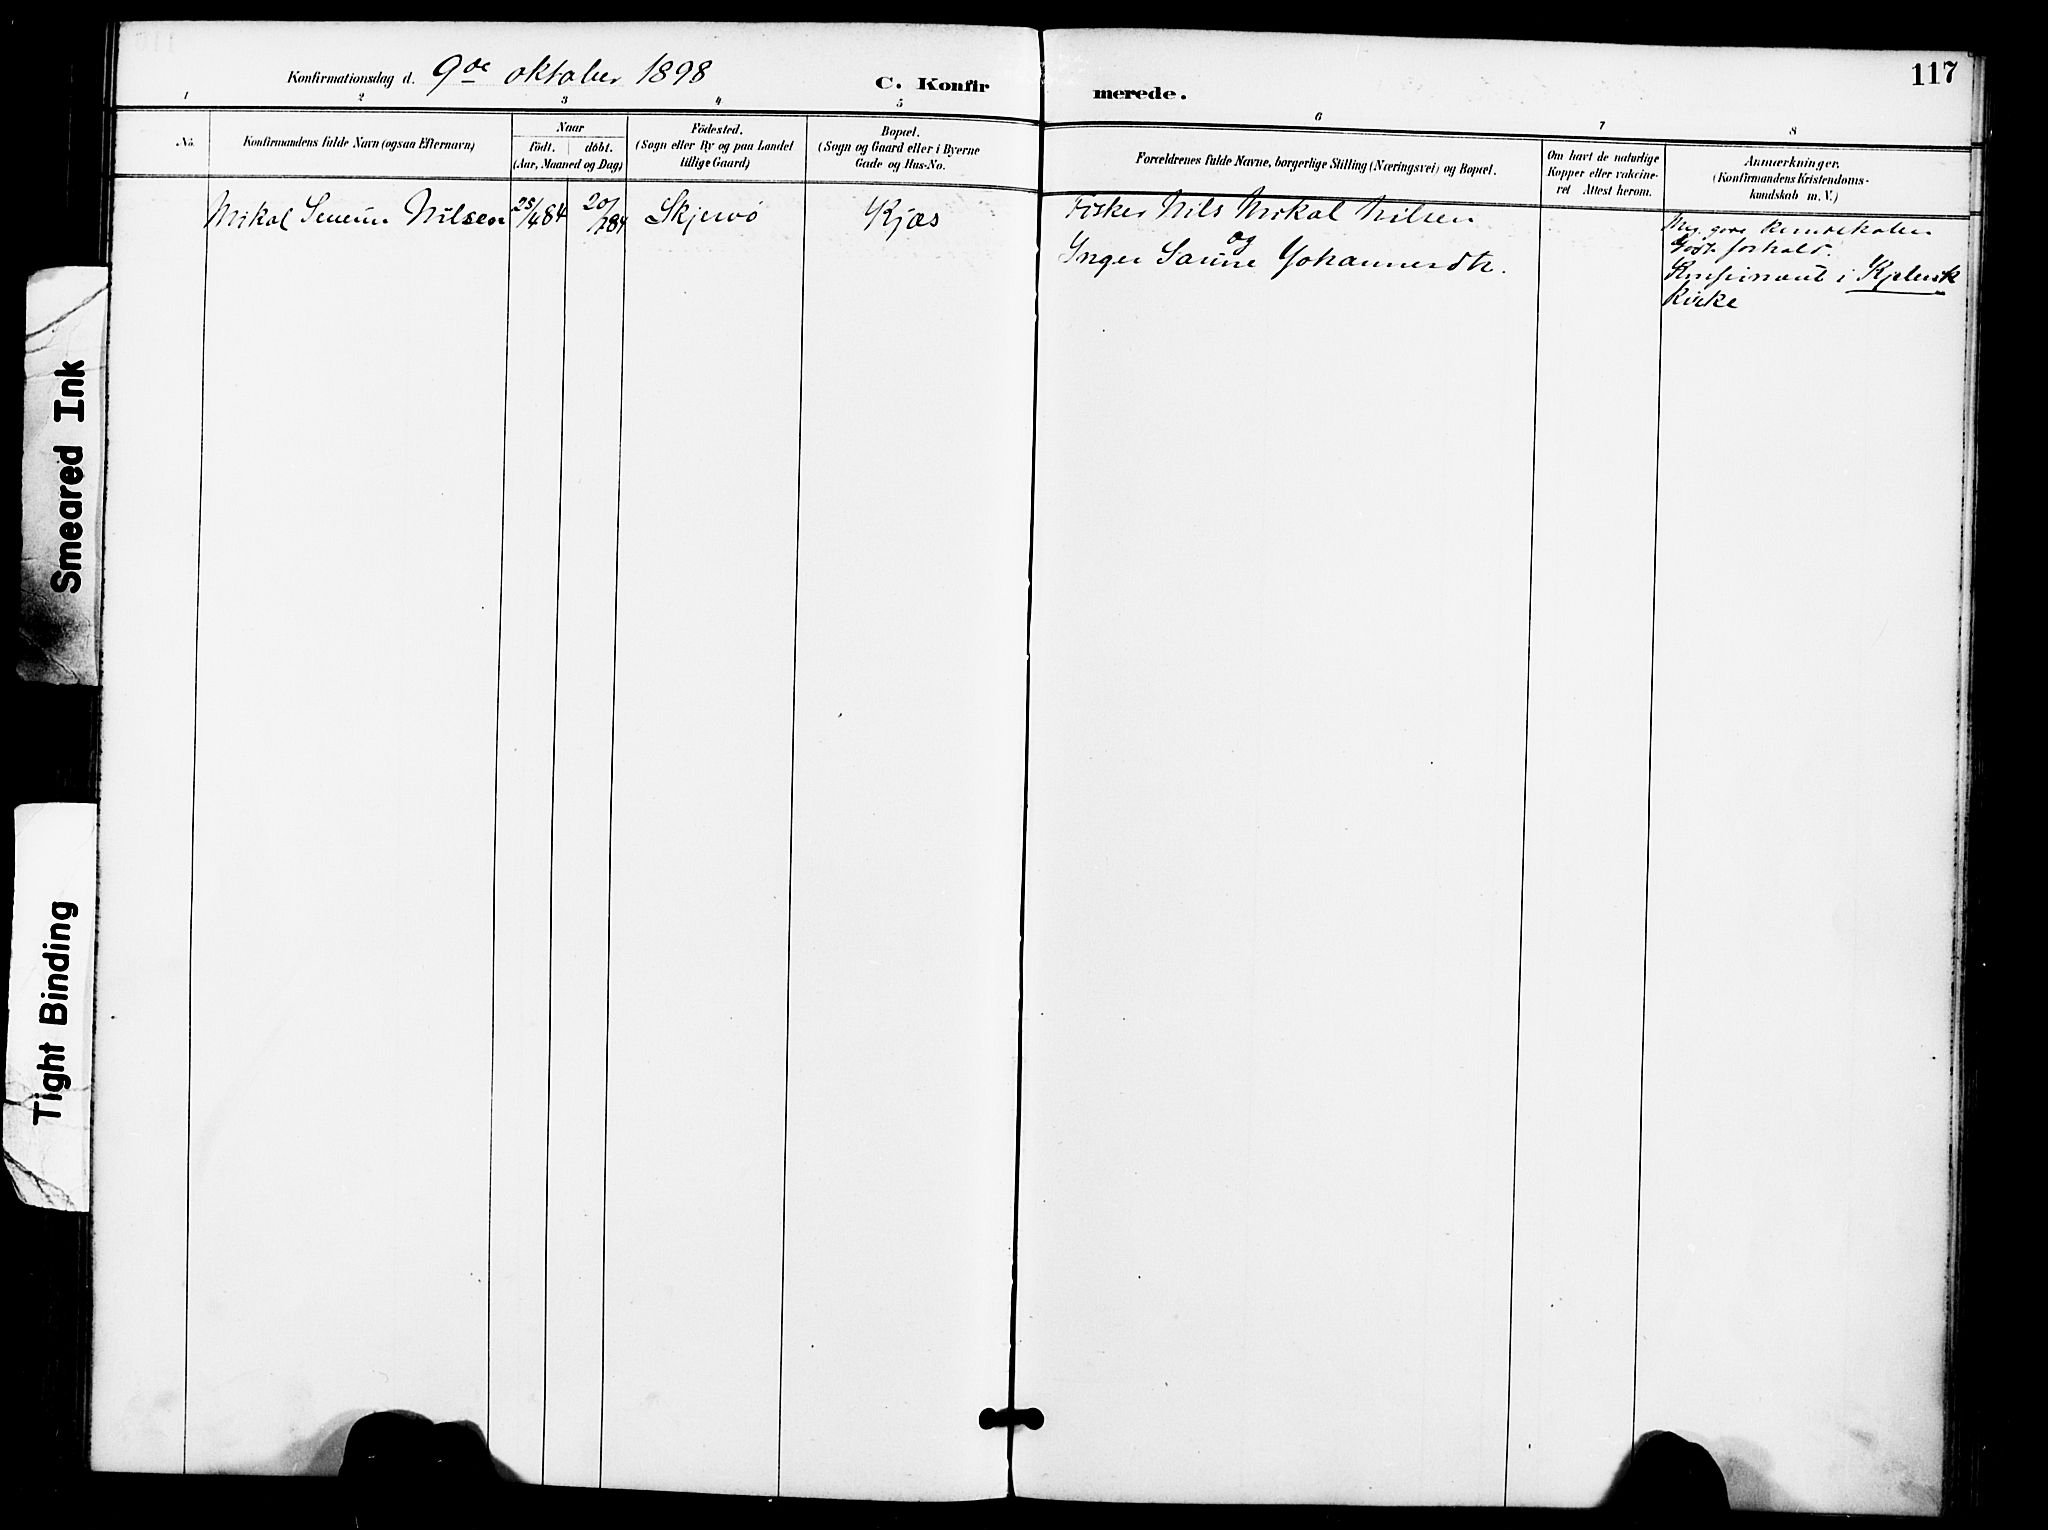 Konfirmationsdag d. 9de oktober 1898
C. Konfir
merede.
117
1
2
3
4
5
6
7
8
No.
Konfirmandens fulde Navn (ogsaa Efternavn)
Naar
födt. döbt.
(Aar, Maaned og Dag)
Födested.
(Sogn eller By og paa Landet
tillige Gaard)
Bopæl.
(Sogn og Gaard eller i Byerne
Gade og Hus-No.
Forældrenes fulde Navne, borgerlige Stilling (Næringsvei) og Bopæl.
Om havt de naturlige
Kopper eller vakcine-
ret Attest herom.
Anmærkninger.
(Konfirmandens Kristendoms-
kundskab m. V.)
Mikal Severin Nilsen
25/4 84
20/7 84
Skjervö
Kjæs
Fisker Nils Mikal Nilsen
og
Inger Sarine Johannesdtr.
Meg. gode kundskaber
Godt forhold.
Konfirmant i
Kirke
Smeared Ink
Tight Binding